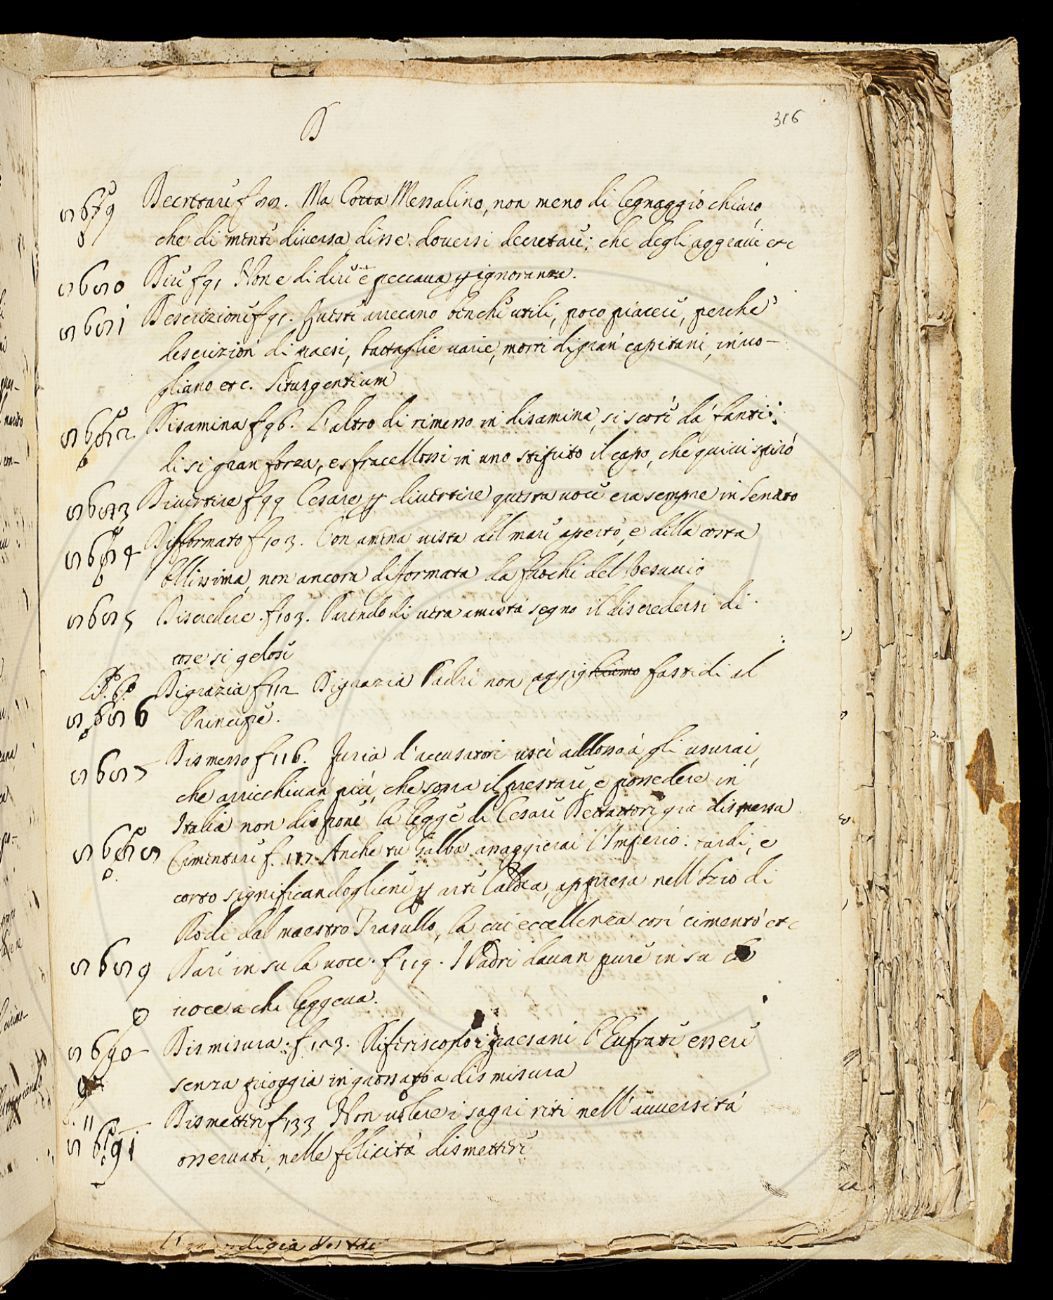 D
316
5679 Decretare f 89. Ma Cotta Messalino, non meno di legnaggio chiaro,
che di mente diversa disse doversi decretare: che degli aggravi etc
5680 Dire f 91 Non è di dire è peccava per ignoranza.
5681 Descrizioni f 95. Questi arrecano benchè utili, poco piacere, perche
descrizioni di paesi, battaglie varie, morti di gran capitani, invo-
gliano etc. Situs gentium
5682 Disamina f 96. L'altro di rimesso in disamina, si scorè da fanti
di si gran forza, e sfracellossi in uno stipito il capo, che quivi spirò
5683 Divertire f 99 Cesare per divertire questa voce era sempre in Senato
5684 Difformato f 103. Con amena vista del mare aperto, e della costa
bellissima, non ancora diformata da fuochi del Vesuvio
5685 Discredere f 103. Parendo di vera amistà segno il discredersi di
cose si gelose
5686 Disgrazia f 112 Disgrazia Padri non fastidi il
Principe.
5687 Dismesso f 116. Furia d'accusatori uscì addosso a gli usurai,
che arricchivan più, che sopra il prestare, e possedere in
Italia non dispone la legge di Cesare Dettatore già dismessa
5688 Cimentare f 117. Anche tu Galba assaggierai l'Imperio: tardi, e
corto significandogliene per arte Caldea, appresa nell'Ozio di
Rodi dal maestro Trasullo, la cui eccellenza così cimentò etc
5689 Dare in su la voce f 119. I Padri davan pure in su la
voce a chi leggeva.
5690 Dismisura f 123. Riferiscono i paesani l'Eufrate essere
senza pioggia ingrossato a dismisura
5691 Dismettere f 133 Non volere i sagri riti nell'avversità
osservati, nelle felicità dismettere